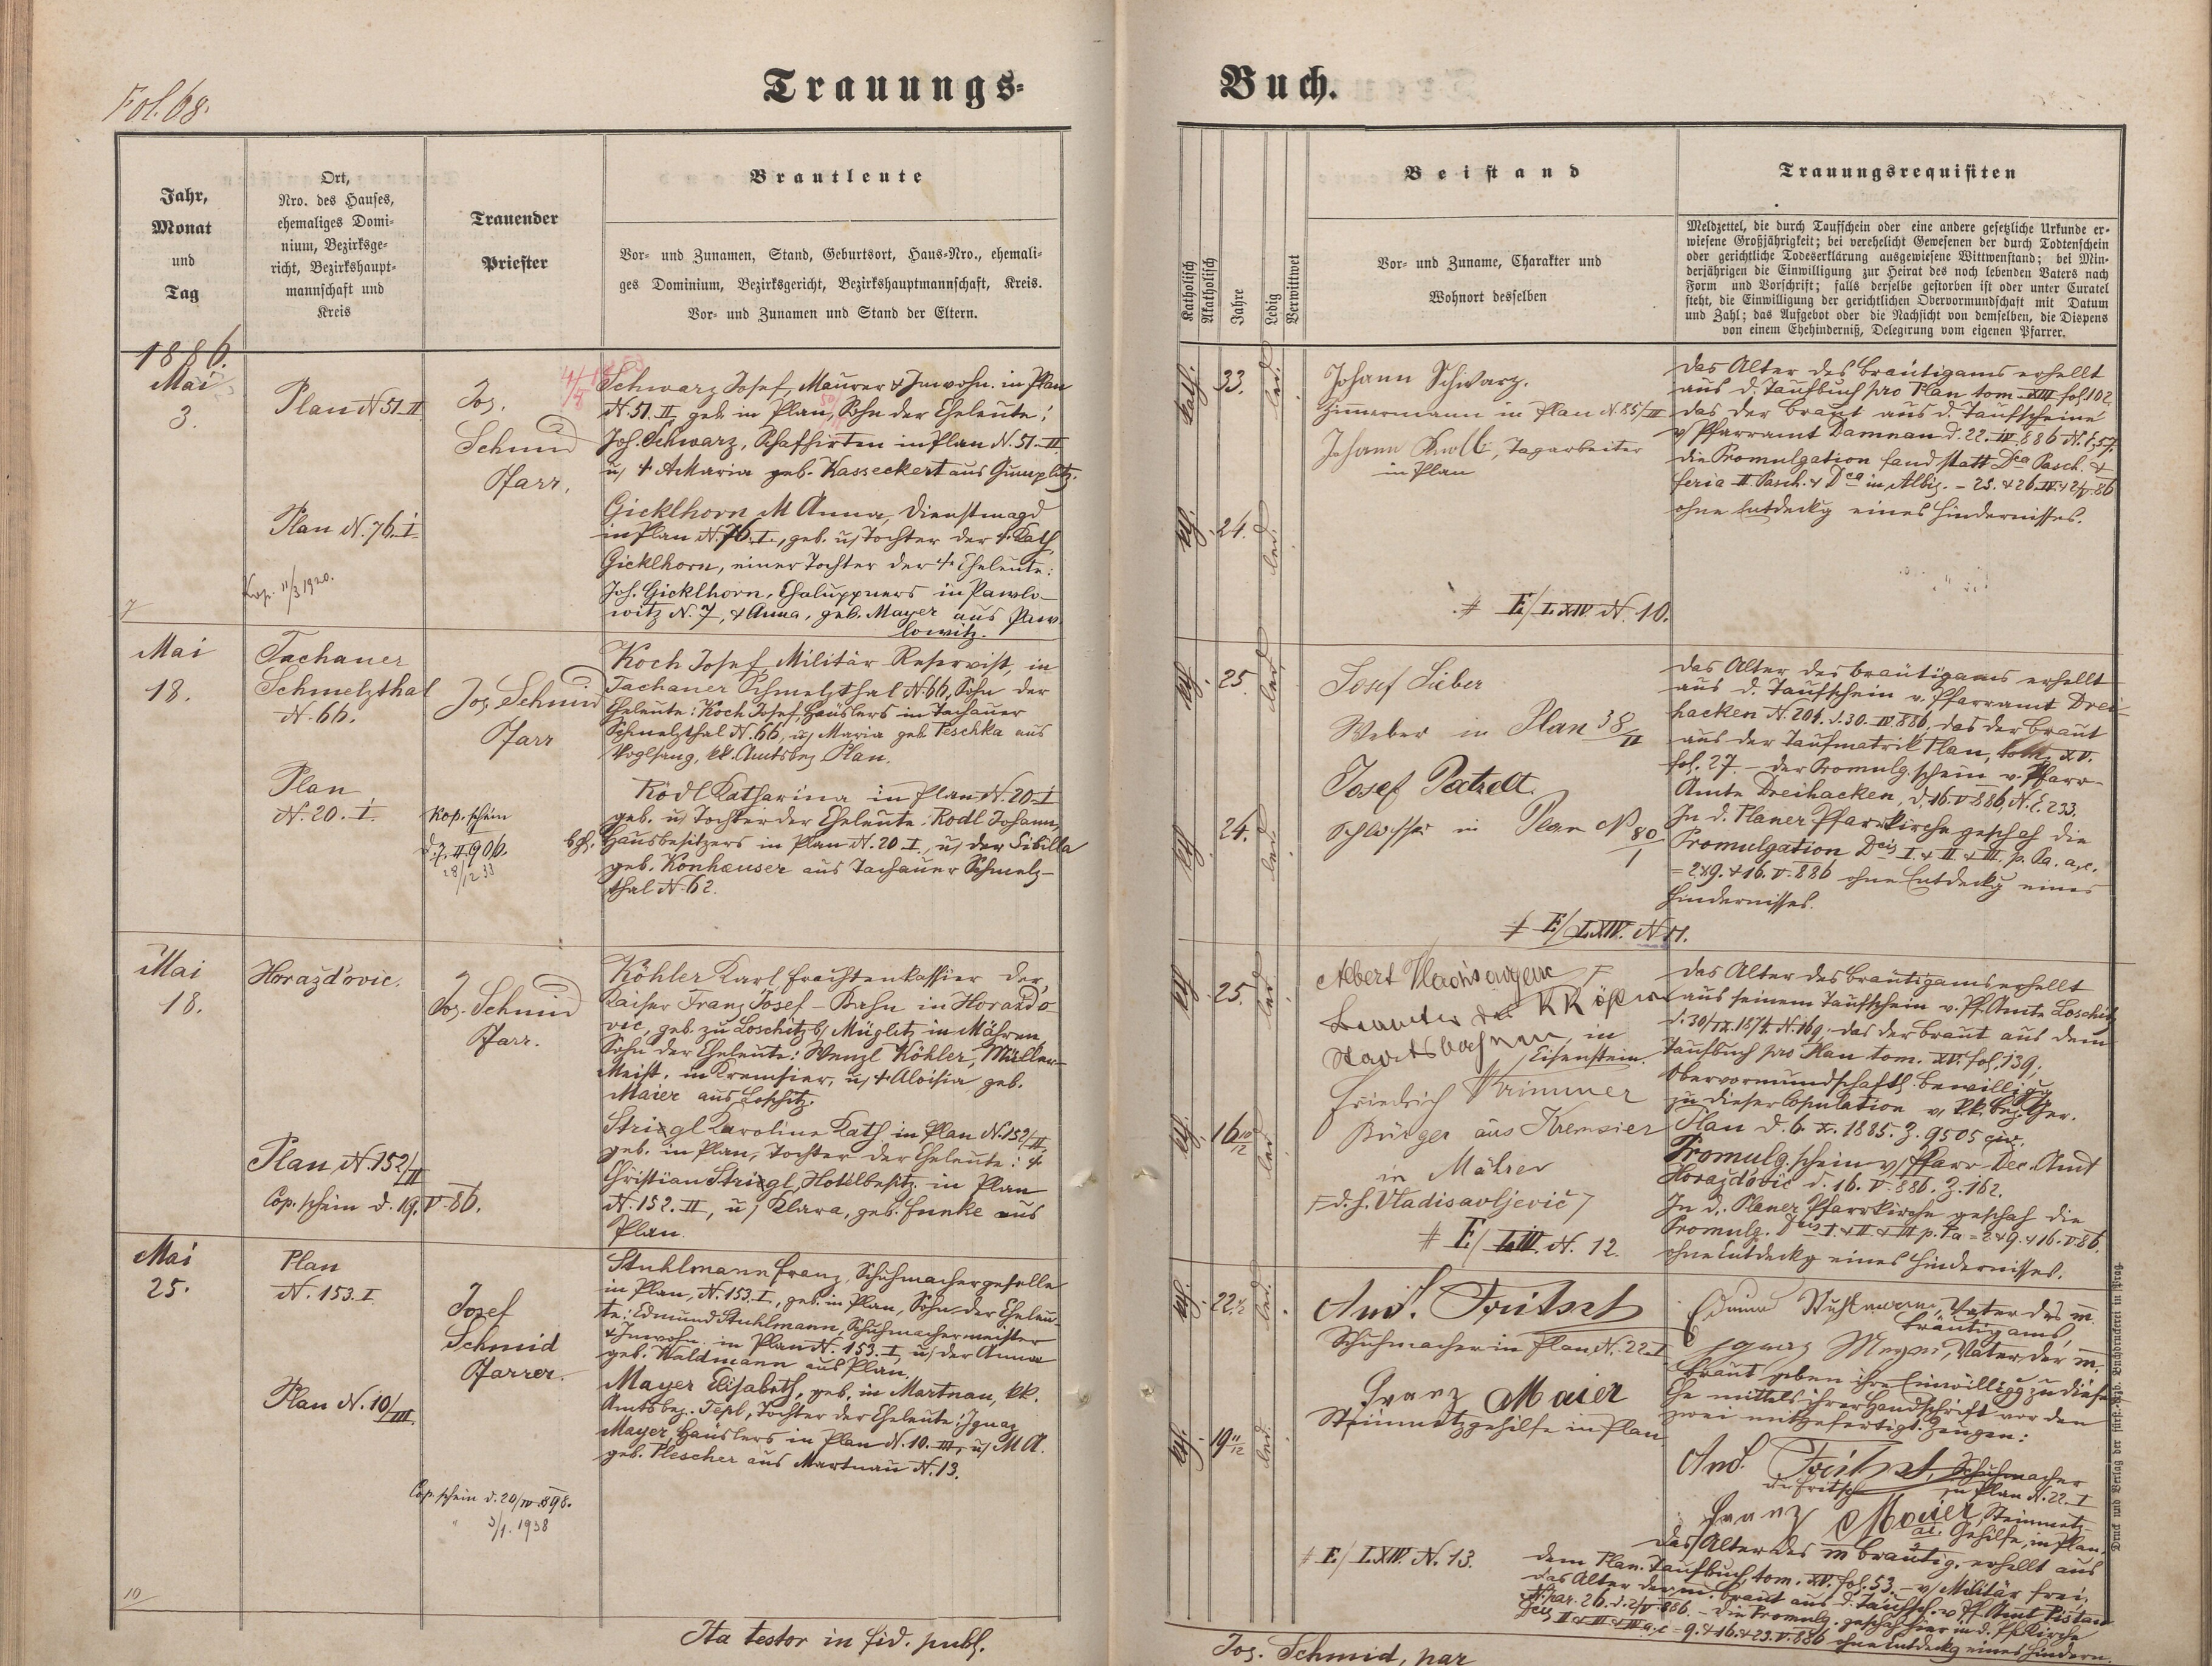 Fol. 68.
Trauungs-
Jahr,
Monat
und
Tag
Ort,
Nro. des Hauses,
ehemaliges Domi-
nium, Bezirksge-
richt, Bezirkshaupt-
mannschaft und
Kreis
Trauender
Priester
Brautleute
Vor- und Zunamen, Stand, Geburtsort, Haus-Nro., ehemali-
ges Dominium, Bezirksgericht, Bezirkshauptmannschaft, Kreis.
Vor- und Zunamen und Stand der Eltern.
1886.
Mai
3.
Plan N 51. II
Jos.
Schmid
Pfarr.
Schwarz Josef, Maurer & Inwohn. in Plan
N. 51. II, geb. in Plan, Sohn der Eheleute:
Joh. Schwarz, Schafhirten in Plan N. 51-II
u/ + A Maria geb. Kasseckert aus Gumplitz.
Plan N. 76. I
Gicklhorn M Anna, Dienstmagd
in Plan N. 76. I., geb. u/ Tochter der +. Kath
Gicklhorn, einer Tochter der +. Eheleute:
Joh. Gicklhorn, Chaluppners in Pawlo-
witz N. 7, & Anna, geb. Mayer aus Paw-
lowitz.
Kop. 11/3 1920.
7
Mai
18.
Tachauer
Schmelzthal
N. 66.
Jos. Schmid
Pfarr
Koch Josef, Militär-Reservist, in
Tachauer Schmelzthal N. 66, Sohn der
Eheleute: Koch Josef, Häuslers in Tachauer
Schmelzthal N. 66, u/ Maria geb. Peschka aus
Voglsang, kk. Amtsbez. Plan.
Plan
N. 20. I.
Kop. schein
d. 7. II. 906.
28/12 33
Rödl Katharina in Plan N. 20. I
geb. u/ Tochter der Eheleute: Rodl Johann,
Hausbesitzers in Plan N. 20. I., u/ der Sibilla
geb. Konhäuser aus Tachauer Schmelz-
thal N. 62.
Mai
18.
Horaždovic.
Jos. Schmid
Pfarr.
Köhler Karl, Frachtenkassier der
Kaiser Franz Josef-Bahn in Horaždo-
vic, geb. zu Loschitz b/ Müglitz in Mähren,
Sohn der Eheleute: Wenzl Köhler, Müller-
Meist. in Kremsier, u/ + Aloisia geb.
Maier aus Loschitz.
Plan, N. 152/II
Cop. schein d. 19. V. 86.
Strigl Karoline Kath. in Plan N. 152/II.
geb. in Plan, Tochter der Eheleute: +
Christian Strigl, Hotelbesitz. in Plan
N. 152. II, u/ Klara, geb. Funke aus
Plan.
Mai
25.
Plan
N. 153. I
Josef
Schmid
Pfarrer.
Stuhlmann Franz, Schuhmachergeselle
in Plan, N. 153. I., geb. in Plan, Sohn der Eheleu-
te: Edmund Stuhlmann, Schuhmachermeister
& Inwohn. in Plan N. 153. I, u/ der Anna
geb. Waldmann aus Plan.
Plan N. 10/III
Mayer Elisabeth, geb. in Martnau, kk.
Amtsbez. Tepl, Tochter der Eheleute: Ignaz
Mayer, Häuslers in Plan N. 10. III, u/ M A.
geb. Plescher aus Martnau N. 13.
Cop. schein d. 20/IV. 898.
" 3/1. 1938
10
Ita testor in fid. publ.
Buch.
Katholisch
Akatholisch
Jahre
Ledig
Verwittwet
Beistand
Vor- und Zuname, Charakter und
Wohnort desselben
Trauungsrequisiten
Meldzettel, die durch Taufschein oder eine andere gesetzliche Urkunde er-
wiesene Großjährigkeit; bei verehelicht Gewesenen der durch Todtenschein
oder gerichtliche Todeserklärung ausgewiesene Wittwenstand; bei Min-
derjährigen die Einwilligung zur Heirat des noch lebenden Vaters nach
Form und Vorschrift; falls derselbe gestorben ist oder unter Curatel
steht, die Einwilligung der gerichtlichen Obervormundschaft mit Datum
und Zahl; das Aufgebot oder die Nachsicht von demselben, die Dispens
von einem Ehehinderniß, Delegirung vom eigenen Pfarrer.
kath. 33. led.
Johann Schwarz.
Zimmermann in Plan N. 85/II
Johann Knoll, Tagarbeiter
in Plan
kth. 24. led.
# E/LXIV. N. 10.
Das Alter des Bräutigams erhellt
aus d. Taufbuch pro Plan tom. XIII fol. 102.
das der Braut aus d. Taufscheine
v Pfarramt Damnau d. 22. IV. 886 N. E. 57.
die Promulgation fand statt Dca Pasch. &
feria II. Pasch. & Dca in Albis. - 25. & 26. IV. & 2/V. 86
ohne Entdeckg eines Hindernisses.
kth. 25. led.
Josef Sieber
Weber in Plan 38/II
Josef Patzelt.
Schlosser in Plan No 80/I
kth 24. led.
# E/LXIV. N 11.
Das Alter des Bräutigams erhellt
aus d. Taufschein v. Pfarramt Drei-
hacken N. 204. d. 30. IV. 886, das der Braut
aus der Taufmatrik Plan, tom. XV.
fol. 27. - der Promulg. schein v. Pfarr-
Amte Dreihacken, d. 16. V. 886 N. E. 233.
In d. Planer Pfarrkirche geschah die
Promulgation Dcis I. & II. & III. p. Pa. a. c.
= 2. & 9. & 16. V. 886 ohne Entdeckg eines
Hindernisses.
kth 25. led.
Albert
Beamter der KK öster
Staatsbahnen in
Eisenstein.
Friedrich Krimmer
Bürger aus Kremsier
in Mähren
d. h. Vladisavljevič
kth. 16 10/12 led
# E/LXIV. N. 12.
Das Alter des Bräutigams erhellt
aus seinem Taufschein v. Pf. Amte Loschitz
d. 30/IX. 1874. N. 169; das der Braut aus dem
Taufbuch pro Plan tom. XV. fol. 139;
Obervormundschaftl. Bewilligg
zu dieser Copulation v. k.k. Bez. Ger.
Plan d. 6. X. 1885. Z. 9505 civ.
Promulg. schein v/ Pfarr-Dec. Amt
Horaždovic d. 16. V. 886. Z. 162.
In d. Planer Pfarrkirche geschah die
Promulg. Dcis I. & II & III p. Pa = 2. & 9. & 16. V. 86.
ohne Entdeckg eines Hindernisses.
kth. 22 led.
And. Fritsch
Schuhmacher in Plan N. 22. I
Franz Maier
Steinmetzgehilfe in Plan
kth. 19 11/12 led.
# E/LXIV. N. 13.
Stuhlmann, Vater des m.
Bräutigams,
Ignaz Mayer, Vater der m.
Braut geben ihre Einwilligg zu dieser
Ehe mittels ihrer Handschrift vor den
zwei mitgefertigt. Zeugen:
And. Fritsch, Schuhmacher
in Plan N. 22. I
Franz Maier, Steinmetz-
Gehilfe, in Plan.
Das Alter des m Bräutig. erhellt aus
dem Plan. Taufbuch, tom. XV. fol. 53. - v/ Militär frei.
das Alter der m. Braut aus d. Taufsch. v Pf. Amt Pistau
N. par. 26. d. 2/V. 886. - Die Promulg. geschah hier in d. Pf. Kirche
Dcis II. & III. & IV a. c = 9. & 16. & 23. V. 886 ohne Entdeckg eines Hindern.
Jos. Schmid, par
Druck und Verlag der fürst.-erzb. Buchdruckerei in Prag.